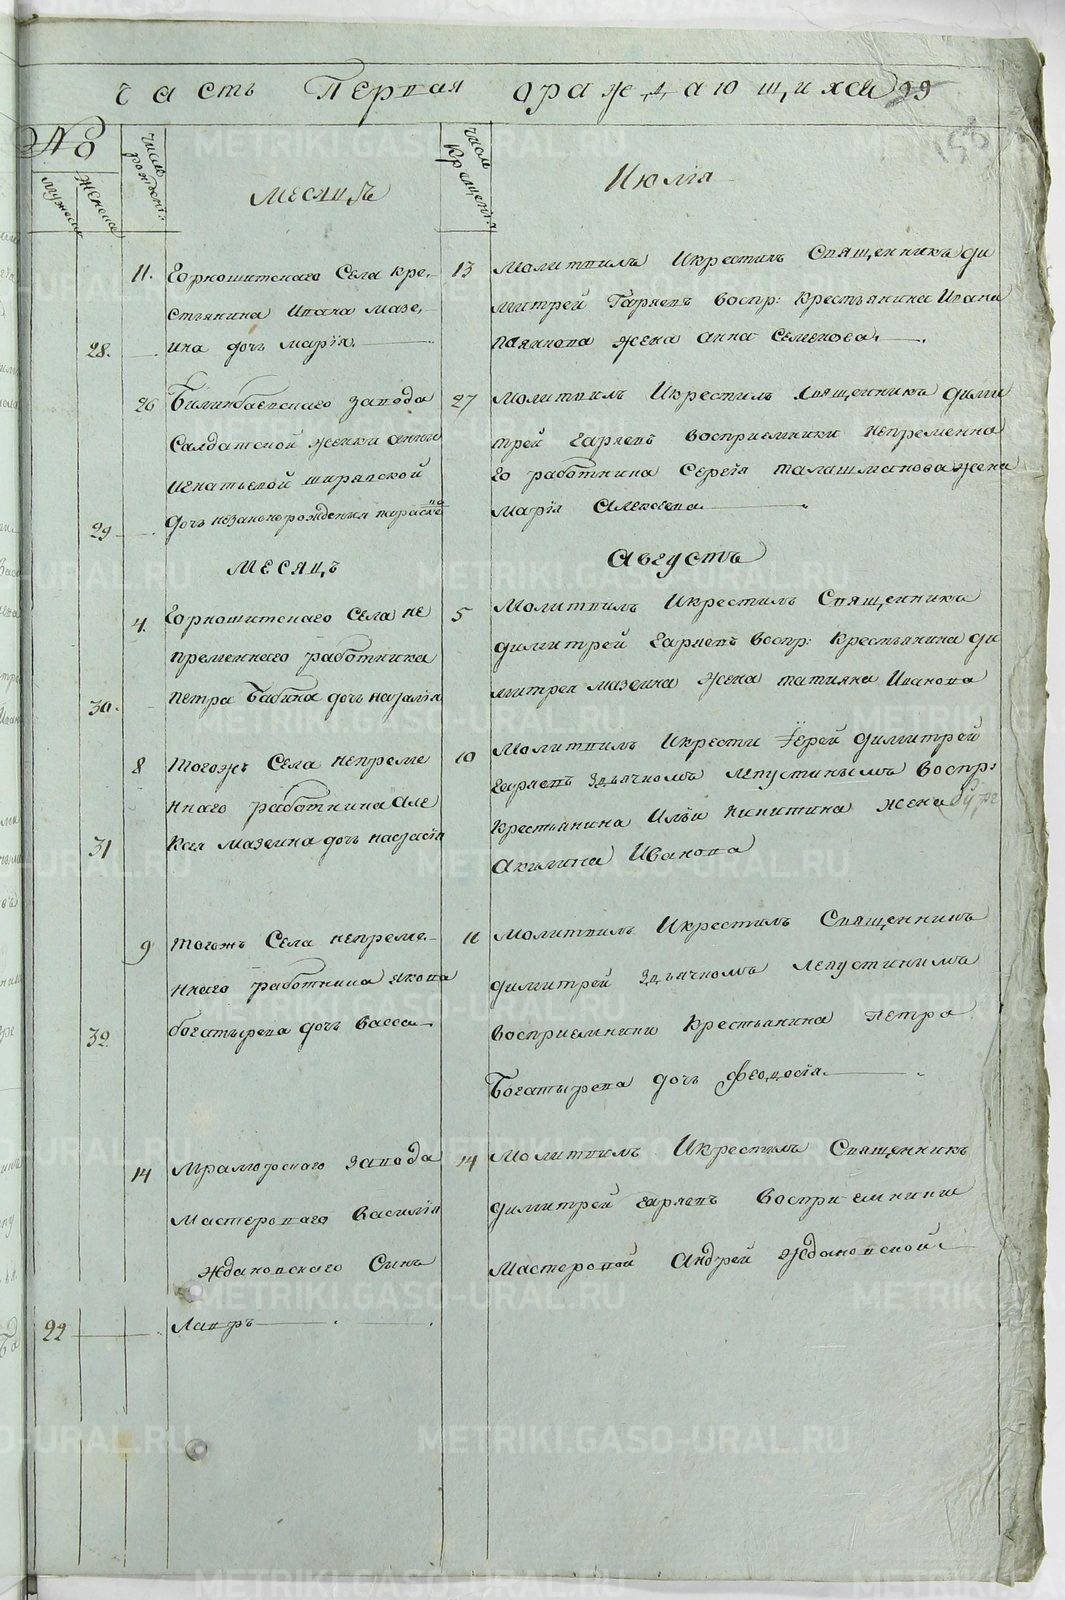 Часть Первая ораждающихся 99
158
№
мужеска
женска
число рожденія
число крещенія
Месяцъ
Июлія
28.
11.
Горношитскаго Села кре-
стьянина Ивана Мазе-
ина дочь Марія.
13
Молитвилъ Икрестилъ Священникъ ди
митрей Гаряевъ воспр: Крестьянина Ивана
жена анна Семенова.
29
26
Билинбаевскаго завода
Салдатской женки анны
Игнатьевой ширявской
дочь незаконорожденная параскева
27
Молитвилъ Икрестилъ Священникъ дими
трей Гаряевъ восприемники непременна
го работника Сергія Талашманова жена
Марія Алексеева
Месяцъ
Августъ
30.
4.
Горношитскаго Села не
пременнаго работника
Петра Бабина дочь Наталія
5
Молитвилъ Икрестилъ Священникъ
димитрей Гаряевъ воспр: Крестьянина ди
митрея Мазеина жена татияна Иванова
31
8
тогожъ Села непреме
ннаго работника Але
ксея Мазеина дочь настасія
10
Молитвилъ Икрести Іерей димитрей
Гаряевъ здьячкомъ Лепустинымъ воспр:
Крестьянина Ильи Никитина жена
Акилина Иванова
32
9
тогожъ Села непреме-
ннаго работника якова
богатырева дочь васса
11
Молитвилъ Икрестилъ Священникъ
димитрей здьячкомъ Лепустинимъ
восприемники Крестьянина Петра
Богатырева дочь Феодосія
22
14
Мраморскаго завода
Мастероваго Василія
Ждановскаго Сынъ
Лавръ
14
Молитвилъ Икрестилъ Священникъ
димитрей Гаряевъ восприемники
Мастеровой Андрей Ждановской
METRIKI.GASO-URAL.RU